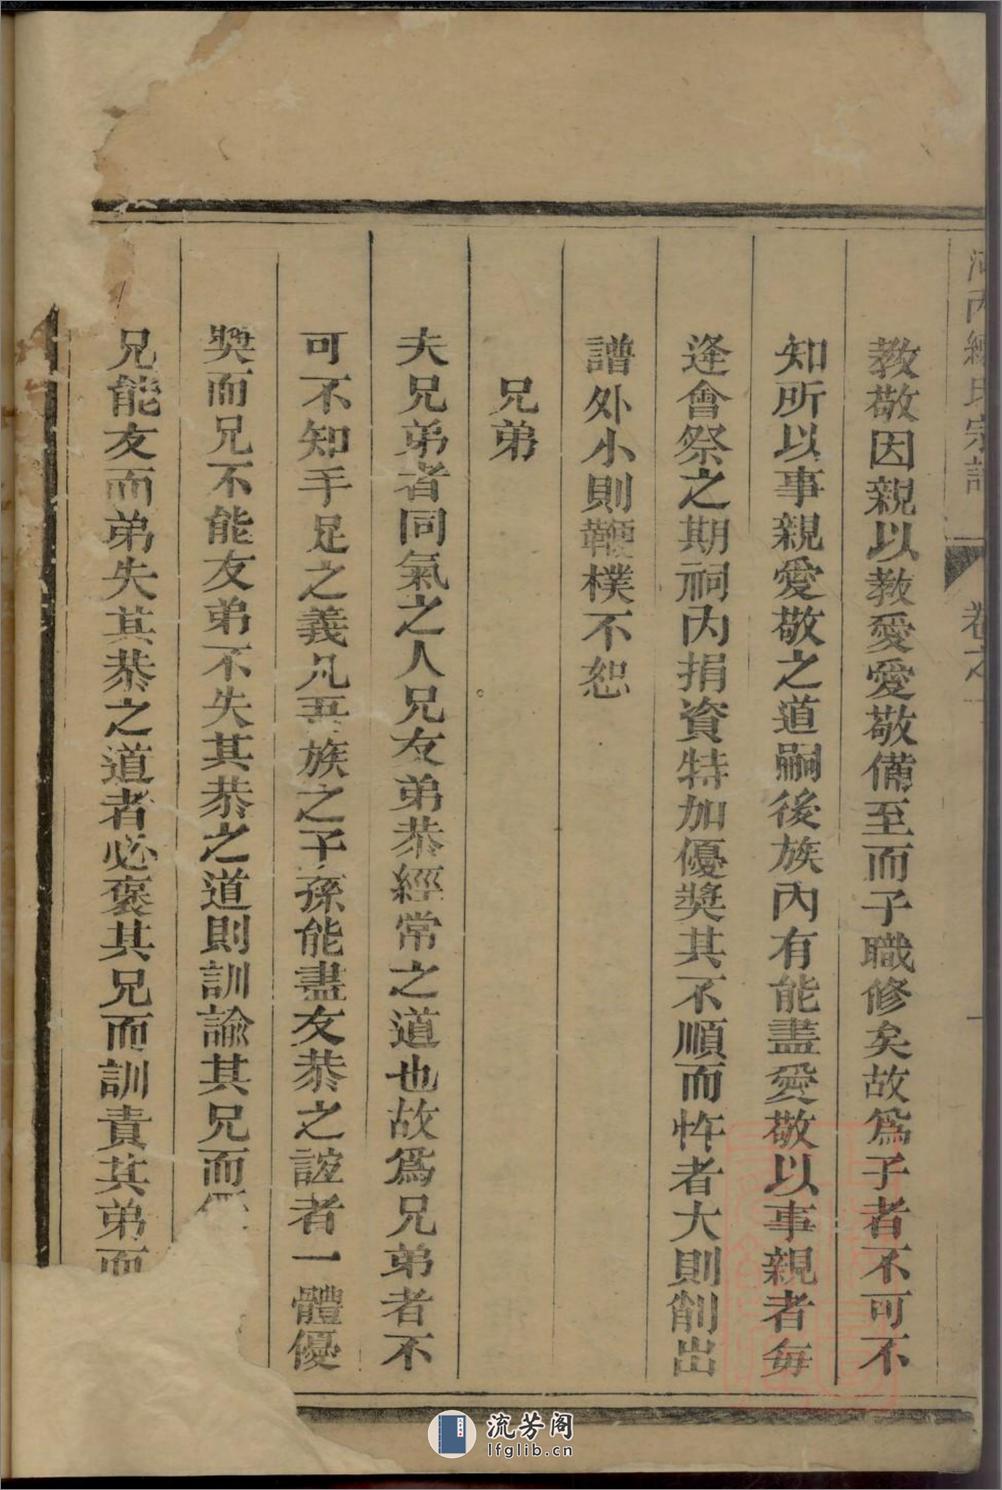 教敬因親以教愛愛敬備至而子職修矣故爲子者不可不
知所以事親愛敬之道嗣後族內有能盡愛敬以事親者每
逢會祭之期祠內捐資特加優獎其不順而忤者大則削出
譜外小則鞭樸不恕
兄弟
夫兄弟者同氣之人兄友弟恭經常之道也故爲兄弟者不
可不知手足之義凡吾族之子孫能盡友恭之誼者一體優
奬而兄不能友弟不失其恭之道則訓諭其兄而
兄能友而弟失其恭之道者必褒其兄而訓責其弟而
氏宗譜
卷之
流芳阁
lfglib.cn